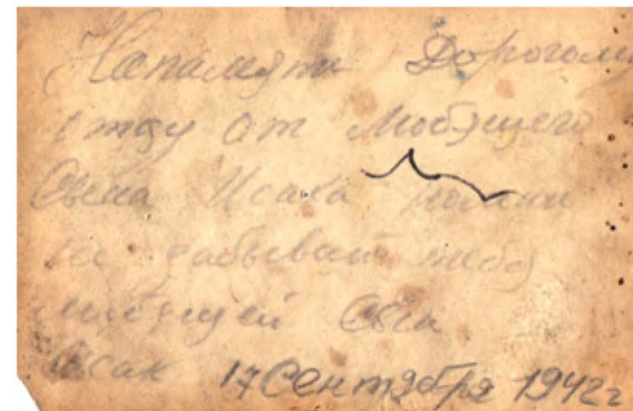 Напамять Дорогому
отцу от Любящего
Сына Исака помни
не забывай тебя
любящей Сын
Исак 17 Сентября 1942 г